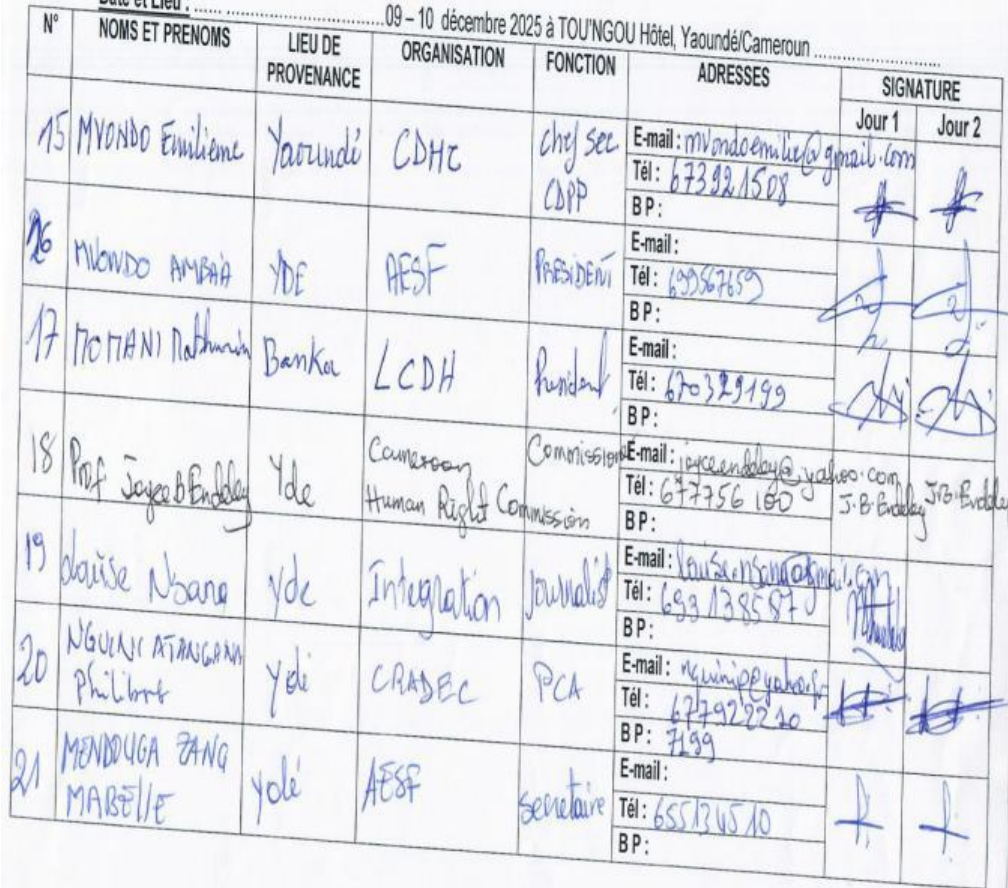 Date et Lieu : ...... ..............................09 – 10 décembre 2025 à TOU'NGOU Hôtel, Yaoundé/Cameroun ..........................
N° NOMS ET PRENOMS LIEU DE PROVENANCE ORGANISATION FONCTION ADRESSES SIGNATURE
Jour 1 Jour 2
15 MVONDO Emilienne Yaoundé CDHC chef sec CDPP
E-mail : mvondoemilie@gmail.com
Tél : 673921508
BP :
16 MVONDO AMBAA YDE AESF PRESIDENT
E-mail :
Tél : 699567659
BP :
17 MOMANI Mathurin Banka LCDH President
E-mail :
Tél : 670329199
BP :
18 Prof Joyce B Endeley Yde Cameroon Human Right Commission Commission
E-mail : joyceendeley@yahoo.com
Tél : 677756 160
BP :
J.B. Endeley J.B. Endele
19 Louise Nsana Yde Intégration Journalist
E-mail : louise.nsana@gmail.com
Tél : 693138587
BP :
20 NGUINI ATANGANA Philibert Ydé CRADEC PCA
E-mail : nguinip@yahoo.fr
Tél : 677922210
BP : 7199
21 MENDOUGA ZANG MABELLE Ydé AESF secretaire
E-mail :
Tél : 655134510
BP :